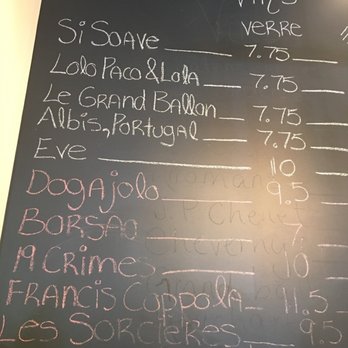 Vins
Verre
Si Soave 7.75
Lolo Paco & Lola 7.75
Le Grand Ballon 7.75
Albis, Portugal 7.75
Eve 10
Dogajolo 9.5
Borsao 7
19 Crimes 10
Francis Coppola 11.5
Les Sorcières 9.5